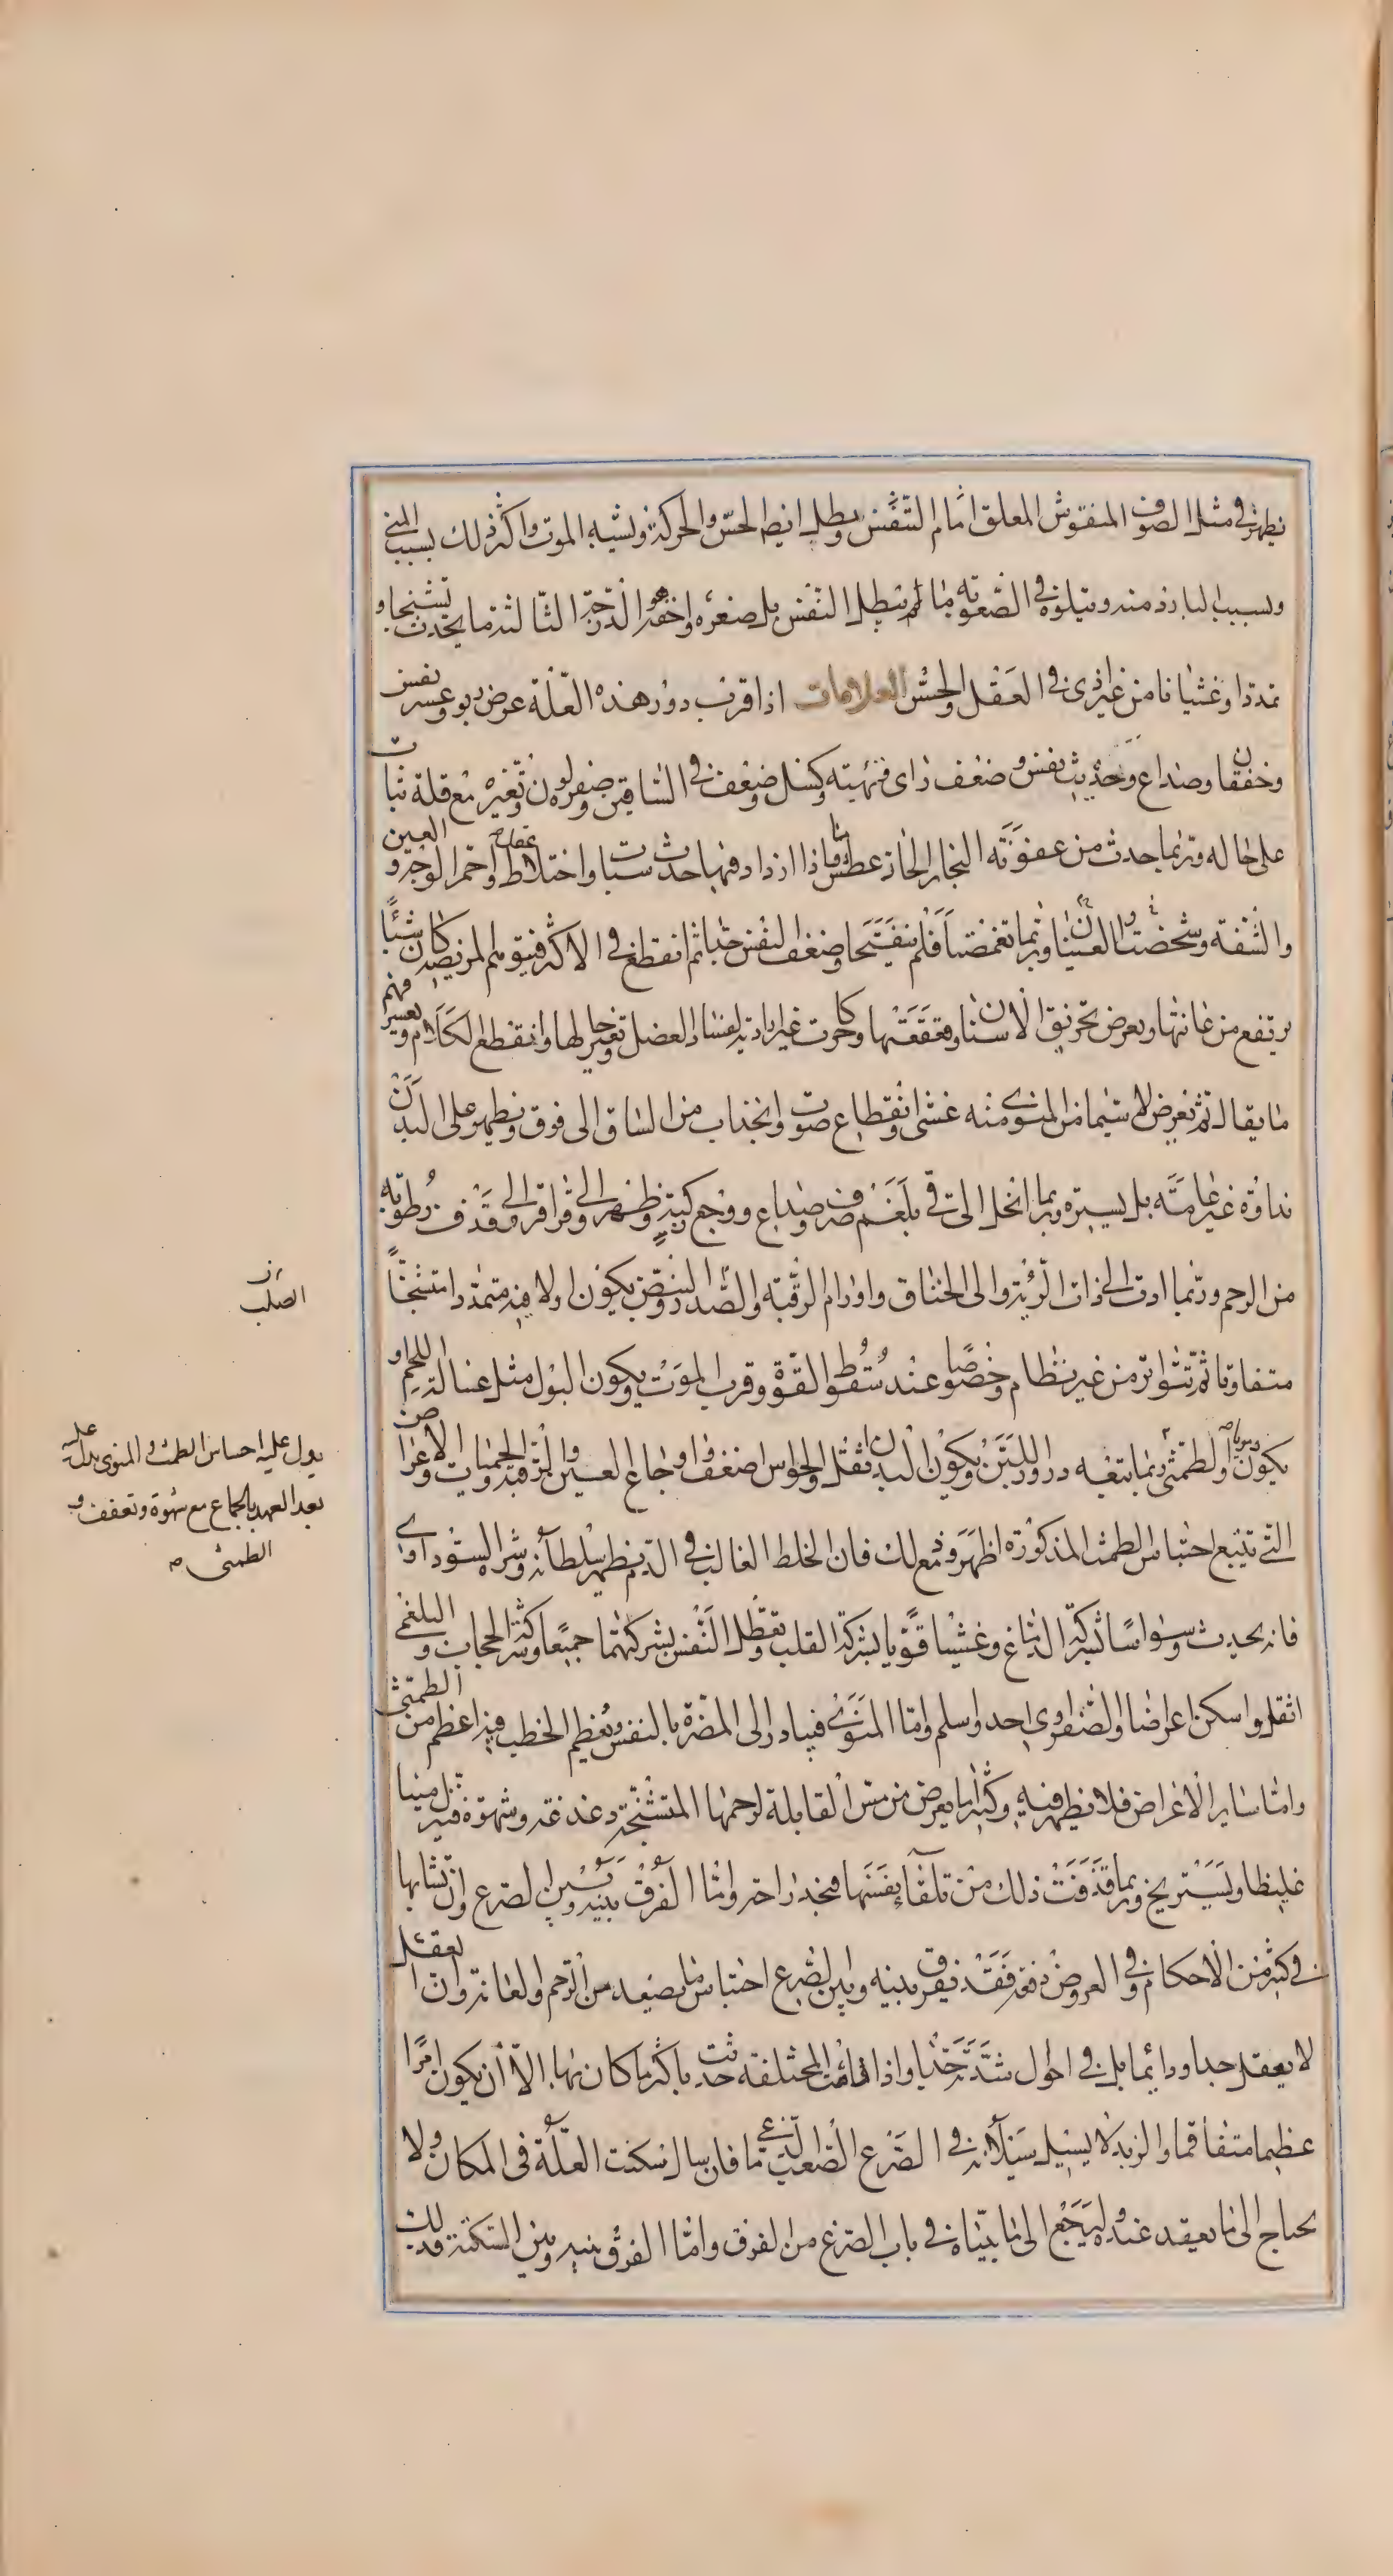 يظهر في مثل الصوف المنفوش المعلق امام التنفس ويبطل ايضا الحس والحركة ويشبه الموت واكثر ذلك بسبب المني
وبسبب البارد منه ويتلوه في الصعوبة ما لم يبطل النفس بل صغره واخفه الدرجة الثالثة ما يحدث تشنجا و
تمددا وغثيانا من غير اذى في العقل والحس العلامات اذا قرب دور هذه العلة عرض ربو وعسر نفس
وخفقان وصداع وخبث نفس وضعف راى وبهتة وكسل وضعف في الساقين وصفرة لون وتغيره مع قلة ثبات
على حاله وربما حدث من عفونة البخار الحاد عطش فاذا ازداد فيها حدث سبات واختلاط واحمر الوجه والعين
والشفة وشخصت العينان وربما تغمضتا فلم تنفتحا وضعف النفس جدا ثم انقطع في الاكثر ويتوهم المريض كان شيئا
يرتفع من عانتها ويعرض تحريق الاسنان وقعقعتها وحركات غير ارادية لفساد العضل وتغير حالها وانقطع الكلام وتعسر فهم
ما يقال ثم يعرض لا سيما من المنوى منه غشى وانقطاع صوت وانجذاب من الساق الى فوق ويظهر على البدن
نداوة غير عامة بل يسيرة وربما انحل الى قى بلغم صرف وصداع ووجع ركبة وظهر والى قراقر والى قذف رطوبة
من الرحم وربما ادت الى ذات الرئة والى الخناق واورام الرقبة والصدر والنبض يكون اولا فيه متمددا متشنجا
متفاوتا ثم تتواتر من غير نظام وخصوصا عند سقوط القوة وقرب الموت ويكون البول مثل غسالة اللحم و
يكون والطمثى ربما يتبعه درور اللبن ويكون البدن اثقل والحواس اضعف واوجاع العين والرقبة والحميات والاعراض
التي تتبع احتباس الطمث المذكورة اظهر ومع ذلك فان الخلط الغالب في الدم يظهر سلطانه وشره السوداوى
فانه يحدث وسواسا بشركة الدماغ وغشيا قويا بشركة القلب وتعطل النفس بشركتهما جميعا وشركة الحجاب والبلغمى
اثقل واسكن اعراضا والصفراوى احد واسلم واما المنوى فيبادر الى المضرة بالنفس ويعظم الخطب فيه اعظم من الطمثى
واما ساير الاعراض فلا يظهر فيه وكثيرا ما يعرض من مس القابلة لرحمها المتشنجة دغدغة وشهوة فينزل منيا
غليظا وتستريح وربما قذفت ذلك من تلقاء نفسها فتجد راحة واما الفرق بينه وبين الصرع وان تشابها
في كثير من الاحكام وفي العروض دفعة فقد يفرق بينه وبين الصرع احتباس ما يصعد من الرحم والعانة وان العقل
لا يعقد جدا ودائما بل في احوال شدته جدا واذا قامت المختنقة حدثت باكثر ما كان بها الا ان يكون امرا
عظيما متفاقما والزبد لا يسيل سيلانه في الصرع الصعب الدماغى فان سال سكنت العلة في المكان ولا
يحتاج الى ما يعقد عنده وليرجع الى ما بيناه في باب الصرع من الفرق واما الفرق بينه وبين السكتة فذلك
الصلب
يدل عليه احساس الطمث والمنوى يدل عليه
بعد العهد بالجماع مع شهوة وتعفف و
الطمثى